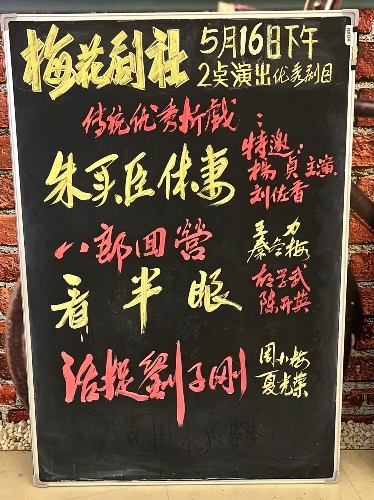 梅花剧社
5月16日下午
2点演出优秀剧目
传统优秀折戲：
朱买臣休妻
特邀：
杨贞主演
刘佐香
八郎回营
王力
秦令梅
看半眼
胡学武
陈开英
活捉劉子刚
周小梅
夏光荣